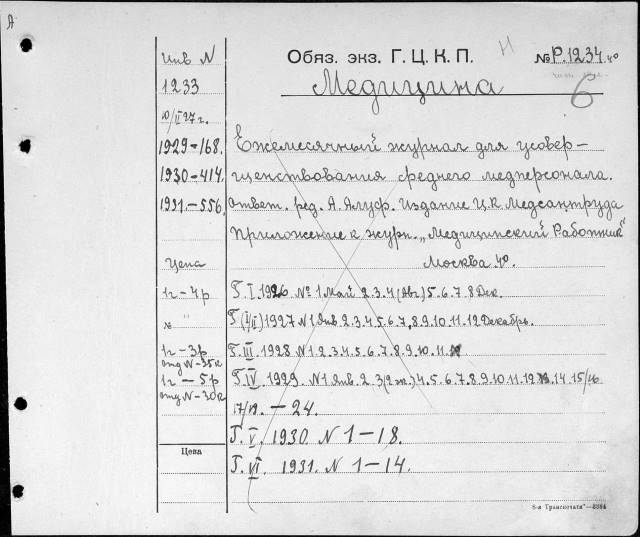 А
Инв N
1233
10/II 27 г.
1929-168.
1930-414.
1931-556.
Цена
1 г - 4 р
№ "
1 г - 3 р
отд N - 35 к
1 г - 5 р
отд N - 30 к
Цена
Обяз. экз. Г. Ц. К. П.
Н
№ Р. 1234 4°
Медицина
6
Ежемесячный журнал для усовер-
шенствования среднего медперсонала.
Ответ. ред. А. Алуф. Издание Ц.К. Медсантруда
Приложение к журн. „Медицинский Работник"
Москва 4°.
Г. I. 1926 № 1 Май 2. 3. 4 (Авг) 5. 6. 7. 8 Дек.
Г (I/II) 1927 N 1 Янв 2. 3. 4. 5. 6. 7. 8. 9. 10. 11. 12 Декабрь.
Г. III. 1928 N 1. 2. 3. 4. 5. 6. 7. 8. 9. 10. 11.
Г. IV. 1929. N 1 Янв. 2. 3 (2 эк.) 4. 5. 6. 7. 8. 9. 10. 11. 12 13. 14. 15/16
17/18. - 24.
Г. V. 1930. N 1-18.
Г. VI. 1931. N 1-14.
8-я Транспечати"—3384